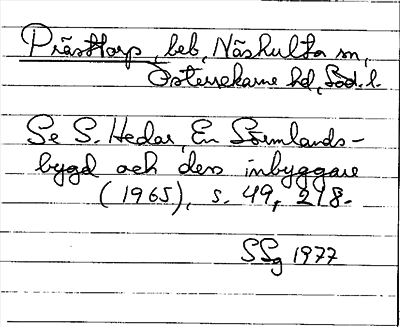 Prästtorp, beb, Näshulta sn,
Österrekarne hd, Söd. l.
Se S. Hedar, En Sörmlands-
bygd och dess inbyggare
(1965), s. 49, 218.
SSg 1977